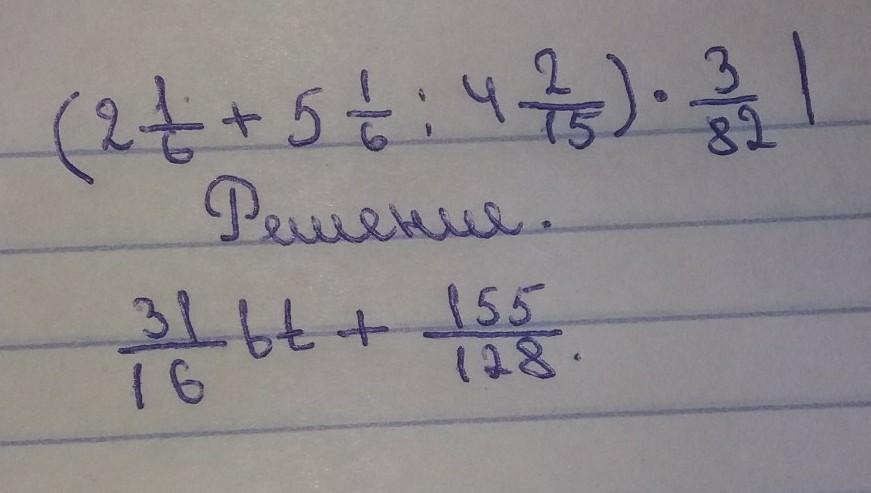 (2 1/6 + 5 1/6 : 4 2/15) · 3/82 |
Решение.
31/16 bt + 155/128.